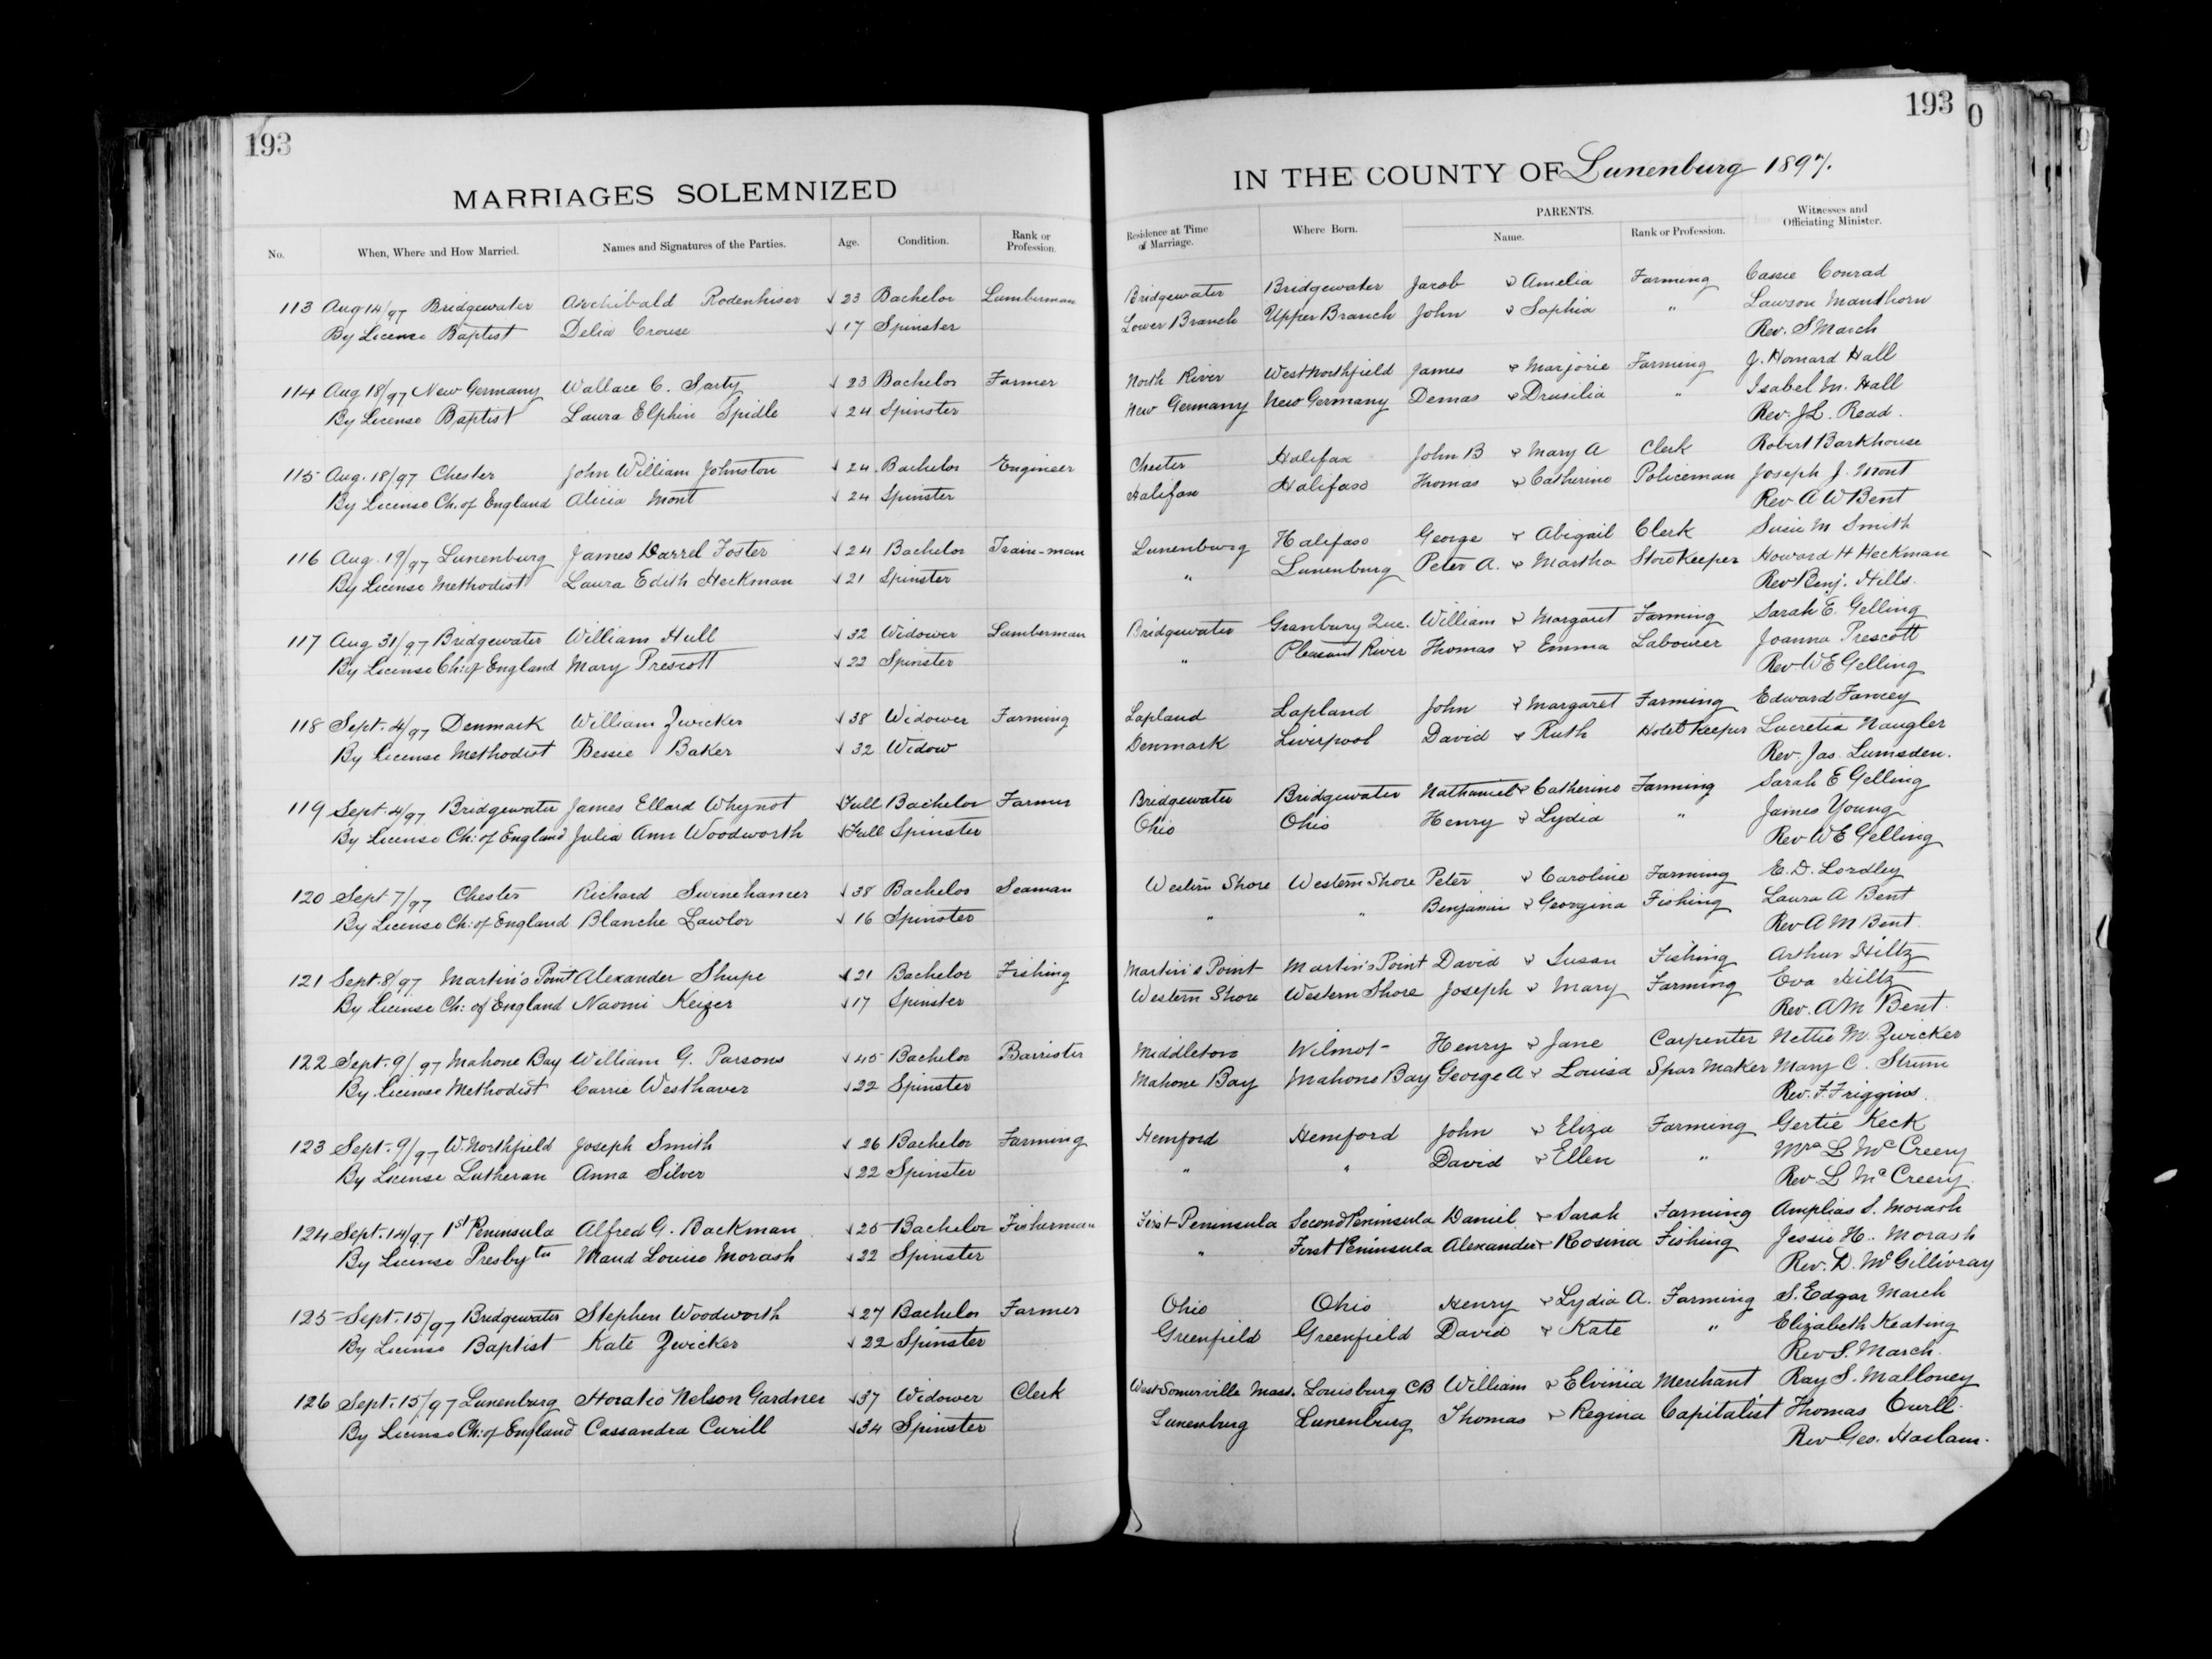 193
193
0
MARRIAGES SOLEMNIZED
IN THE COUNTY OF Lunenburg 1897.
No. When, Where and How Married. Names and Signatures of the Parties. Age. Condition. Rank or Profession. Residence at Time of Marriage. Where Born. PARENTS. Name. Rank or Profession. Witnesses and Officiating Minister.
113 Aug 14/97 Bridgewater Archibald Rodenhiser 23 Bachelor Lumberman Bridgewater Bridgewater Jacob & Amelia Farming Cassie Conrad
By License Baptist Delia Crouse 17 Spinster Lower Branch Upper Branch John & Sophia " Lawson Manthorn
Rev. S March
114 Aug 18/97 New Germany Wallace C. Sarty 23 Bachelor Farmer North River West Northfield James & Marjorie Farming J. Homard Hall
By License Baptist Laura Elphin Spidle 24 Spinster New Germany New Germany Demas & Drusilia " Isabel M. Hall
Rev. J L. Read.
115 Aug. 18/97 Chester John William Johnston 24 Bachelor Engineer Chester Halifax John B & Mary A Clerk Robert Barkhouse
By License Ch. of England Alicia Mont 24 Spinster Halifax Halifax Thomas & Catherine Policeman Joseph J. Mont
Rev. A W Bent
116 Aug. 19/97 Lunenburg James Darrel Foster 24 Bachelor Train-man Lunenburg Halifax George & Abigail Clerk Susie M Smith
By License Methodist Laura Edith Heckman 21 Spinster " Lunenburg Peter A. & Martha Store Keeper Howard H Heckman
Rev Benj. Hills.
117 Aug 31/97 Bridgewater William Hull 32 Widower Lumberman Bridgewater Granbury Que. William & Margaret Farming Sarah E. Gelling
By License Ch: of England Mary Prescott 22 Spinster " Pleasant River Thomas & Emma Labourer Joanna Prescott
Rev W E Gelling
118 Sept. 4/97 Denmark William Zwicker 38 Widower Farming Lapland Lapland John & Margaret Farming Edward Fancey
By License Methodist Bessie Baker 32 Widow Denmark Liverpool David & Ruth Hotel Keeper Lucretia Naugler
Rev. Jas. Lumsden.
119 Sept. 4/97 Bridgewater James Ellard Whynot Full Bachelor Farmer Bridgewater Bridgewater Nathaniel & Catherine Farming Sarah E Gelling
By License Ch: of England Julia Ann Woodworth Full Spinster Ohio Ohio Henry & Lydia " James Young
Rev W E Gelling
120 Sept 7/97 Chester Richard Swinehamer 38 Bachelor Seaman Western Shore Western Shore Peter & Caroline Farming E. D. Lordley
By License Ch: of England Blanche Lawlor 16 Spinster " " Benjamin & Georgina Fishing Laura A Bent
Rev A M Bent.
121 Sept. 8/97 Martin's Point Alexander Shupe 21 Bachelor Fishing Martin's Point Martin's Point David & Susan Fishing Arthur Hiltz
By License Ch: of England Naomi Keizer 17 Spinster Western Shore Western Shore Joseph & Mary Farming Eva Hiltz
Rev. A M Bent.
122 Sept. 9/97 Mahone Bay William G. Parsons 45 Bachelor Barrister Middleton Wilmot Henry & Jane Carpenter Nettie M. Zwicker
By License Methodist Carrie Westhaver 22 Spinster Mahone Bay Mahone Bay George A & Louisa Spar Maker Mary C. Strum
Rev. F. Friggins.
123 Sept. 9/97 W. Northfield Joseph Smith 26 Bachelor Farming Hemford Hemford John & Eliza Farming Gertie Keck
By License Lutheran Anna Silver 22 Spinster " " David & Ellen " Mrs L McCreery
Rev. L McCreery.
124 Sept. 14/97 1st Peninsula Alfred G. Backman 25 Bachelor Fisherman First Peninsula Second Peninsula Daniel & Sarah Farming Amplias S. Morash
By License Presbyter Maud Louise Morash 22 Spinster " First Peninsula Alexander & Rosina Fishing Jessie H. Morash
Rev. D. McGillivray
125 Sept. 15/97 Bridgewater Stephen Woodworth 27 Bachelor Farmer Ohio Ohio Henry & Lydia A. Farming S. Edgar March
By License Baptist Kate Zwicker 22 Spinster Greenfield Greenfield David & Kate " Elizabeth Keating
Rev S. March.
126 Sept. 15/97 Lunenburg Horatio Nelson Gardner 37 Widower Clerk West Somerville Mass. Louisburg CB William & Elvinia Merchant Ray S. Malloney
By License Ch: of England Cassandra Curill 34 Spinster Lunenburg Lunenburg Thomas & Regina Capitalist Thomas Curll.
Rev Geo. Haslam.